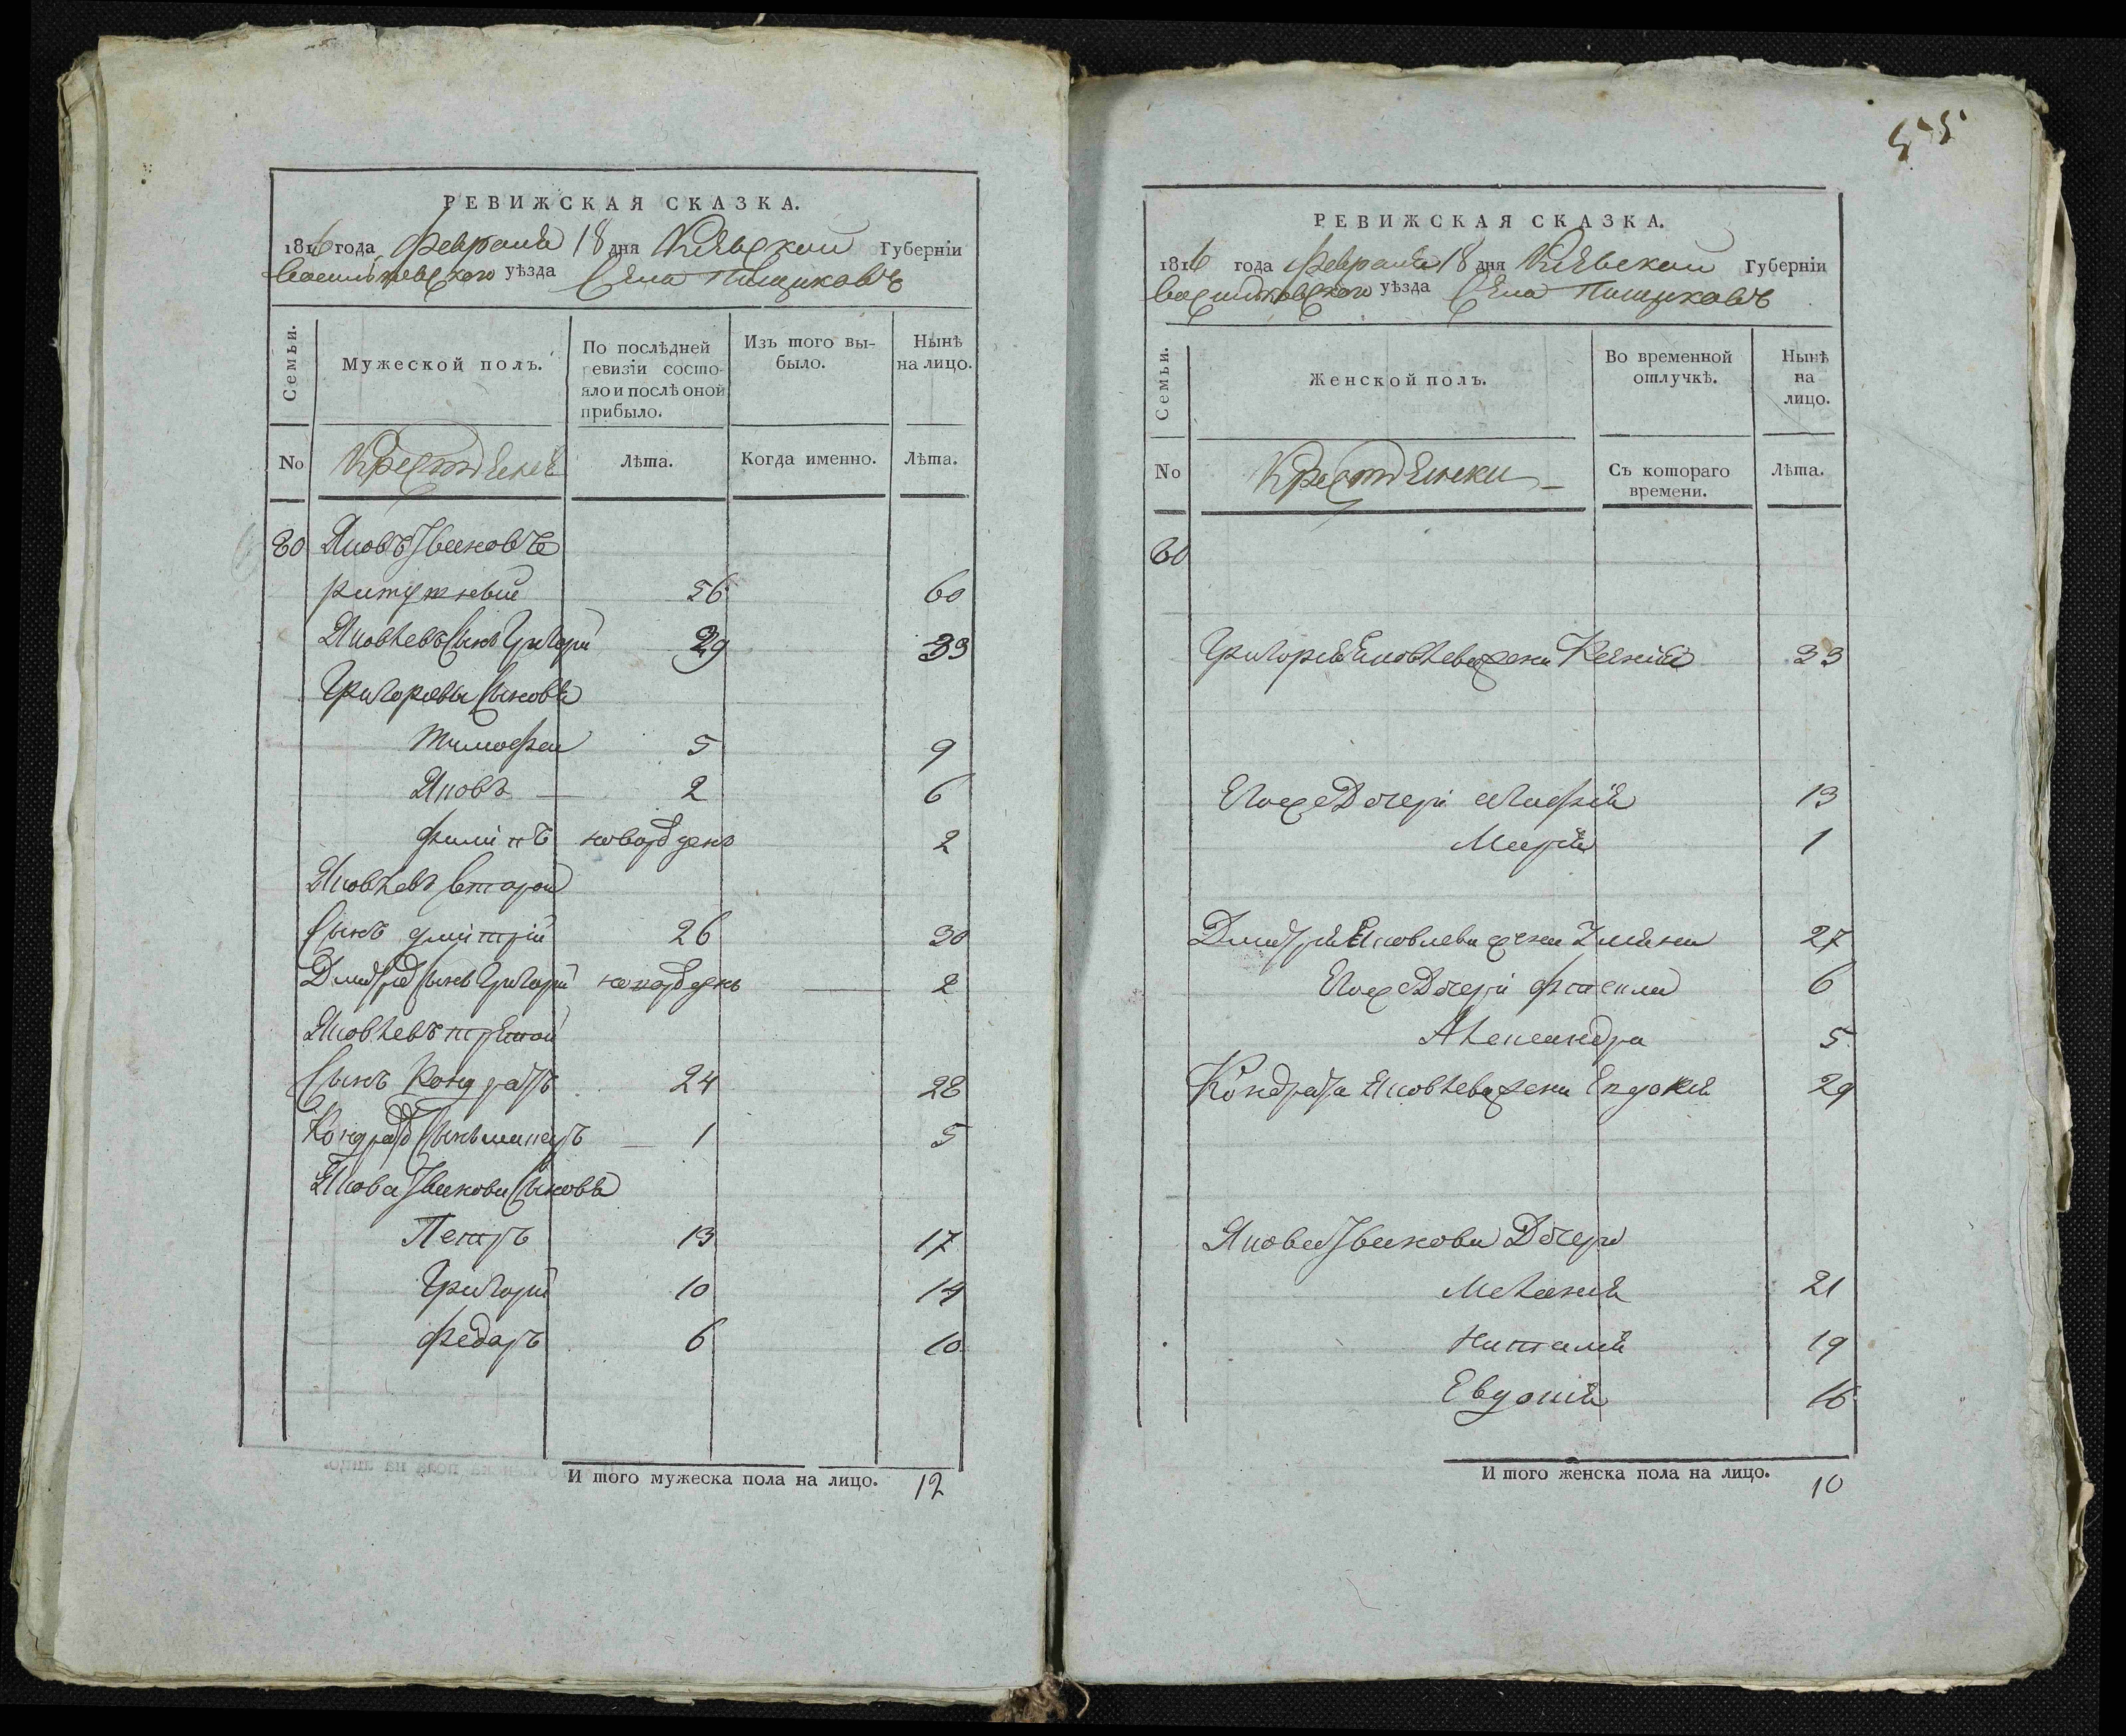 РЕВИЖСКАЯ СКАЗКА.
1816 года февраля 18 дня Киевской Губерніи
Васильковского уѣзда Села Пищиковъ
Семьи.
Мужеской полъ.
По послѣдней ревизіи состояло и послѣ оной прибыло.
Изъ того выбыло.
Нынѣ на лицо.
No
Крестьяне
Лѣта.
Когда именно.
Лѣта.
Яковъ Ивановъ
56 60
Яковлевъ Сынъ Григорій 29 33
Григорьевы Сыновья
Тимофей 5 9
Яковъ 2 6
Филипъ новорожденъ 2
Яковлевъ второй
Сынъ Дмитрій 26 30
Сынъ Григорій новорожденъ 2
Яковлевъ третой
Сынъ Кондратъ 24 28
1 5
Якова Иванова Сыновья
Петръ 13 17
Григорій 10 14
Федаръ 6 10
И того мужеска пола на лицо. 12
55
РЕВИЖСКАЯ СКАЗКА.
1816 года февраля 18 дня Киевской Губерніи
Васильковского уѣзда Села Пищиковъ
Семьи.
Женской полъ.
Во временной отлучкѣ.
Нынѣ на лицо.
No
Крестьянки
Съ котораго времени.
Лѣта.
Григорія Яковлева жена Ксенія 33
Дочери 13
Марія 1
Дмитрія Яковлева жена 27
Дочери 6
Александра 5
Кондрата Яковлева жена Евдокія 29
Якова Иванова Дочери
Меланія 21
Наталія 19
Евдокія 16
И того женска пола на лицо. 10